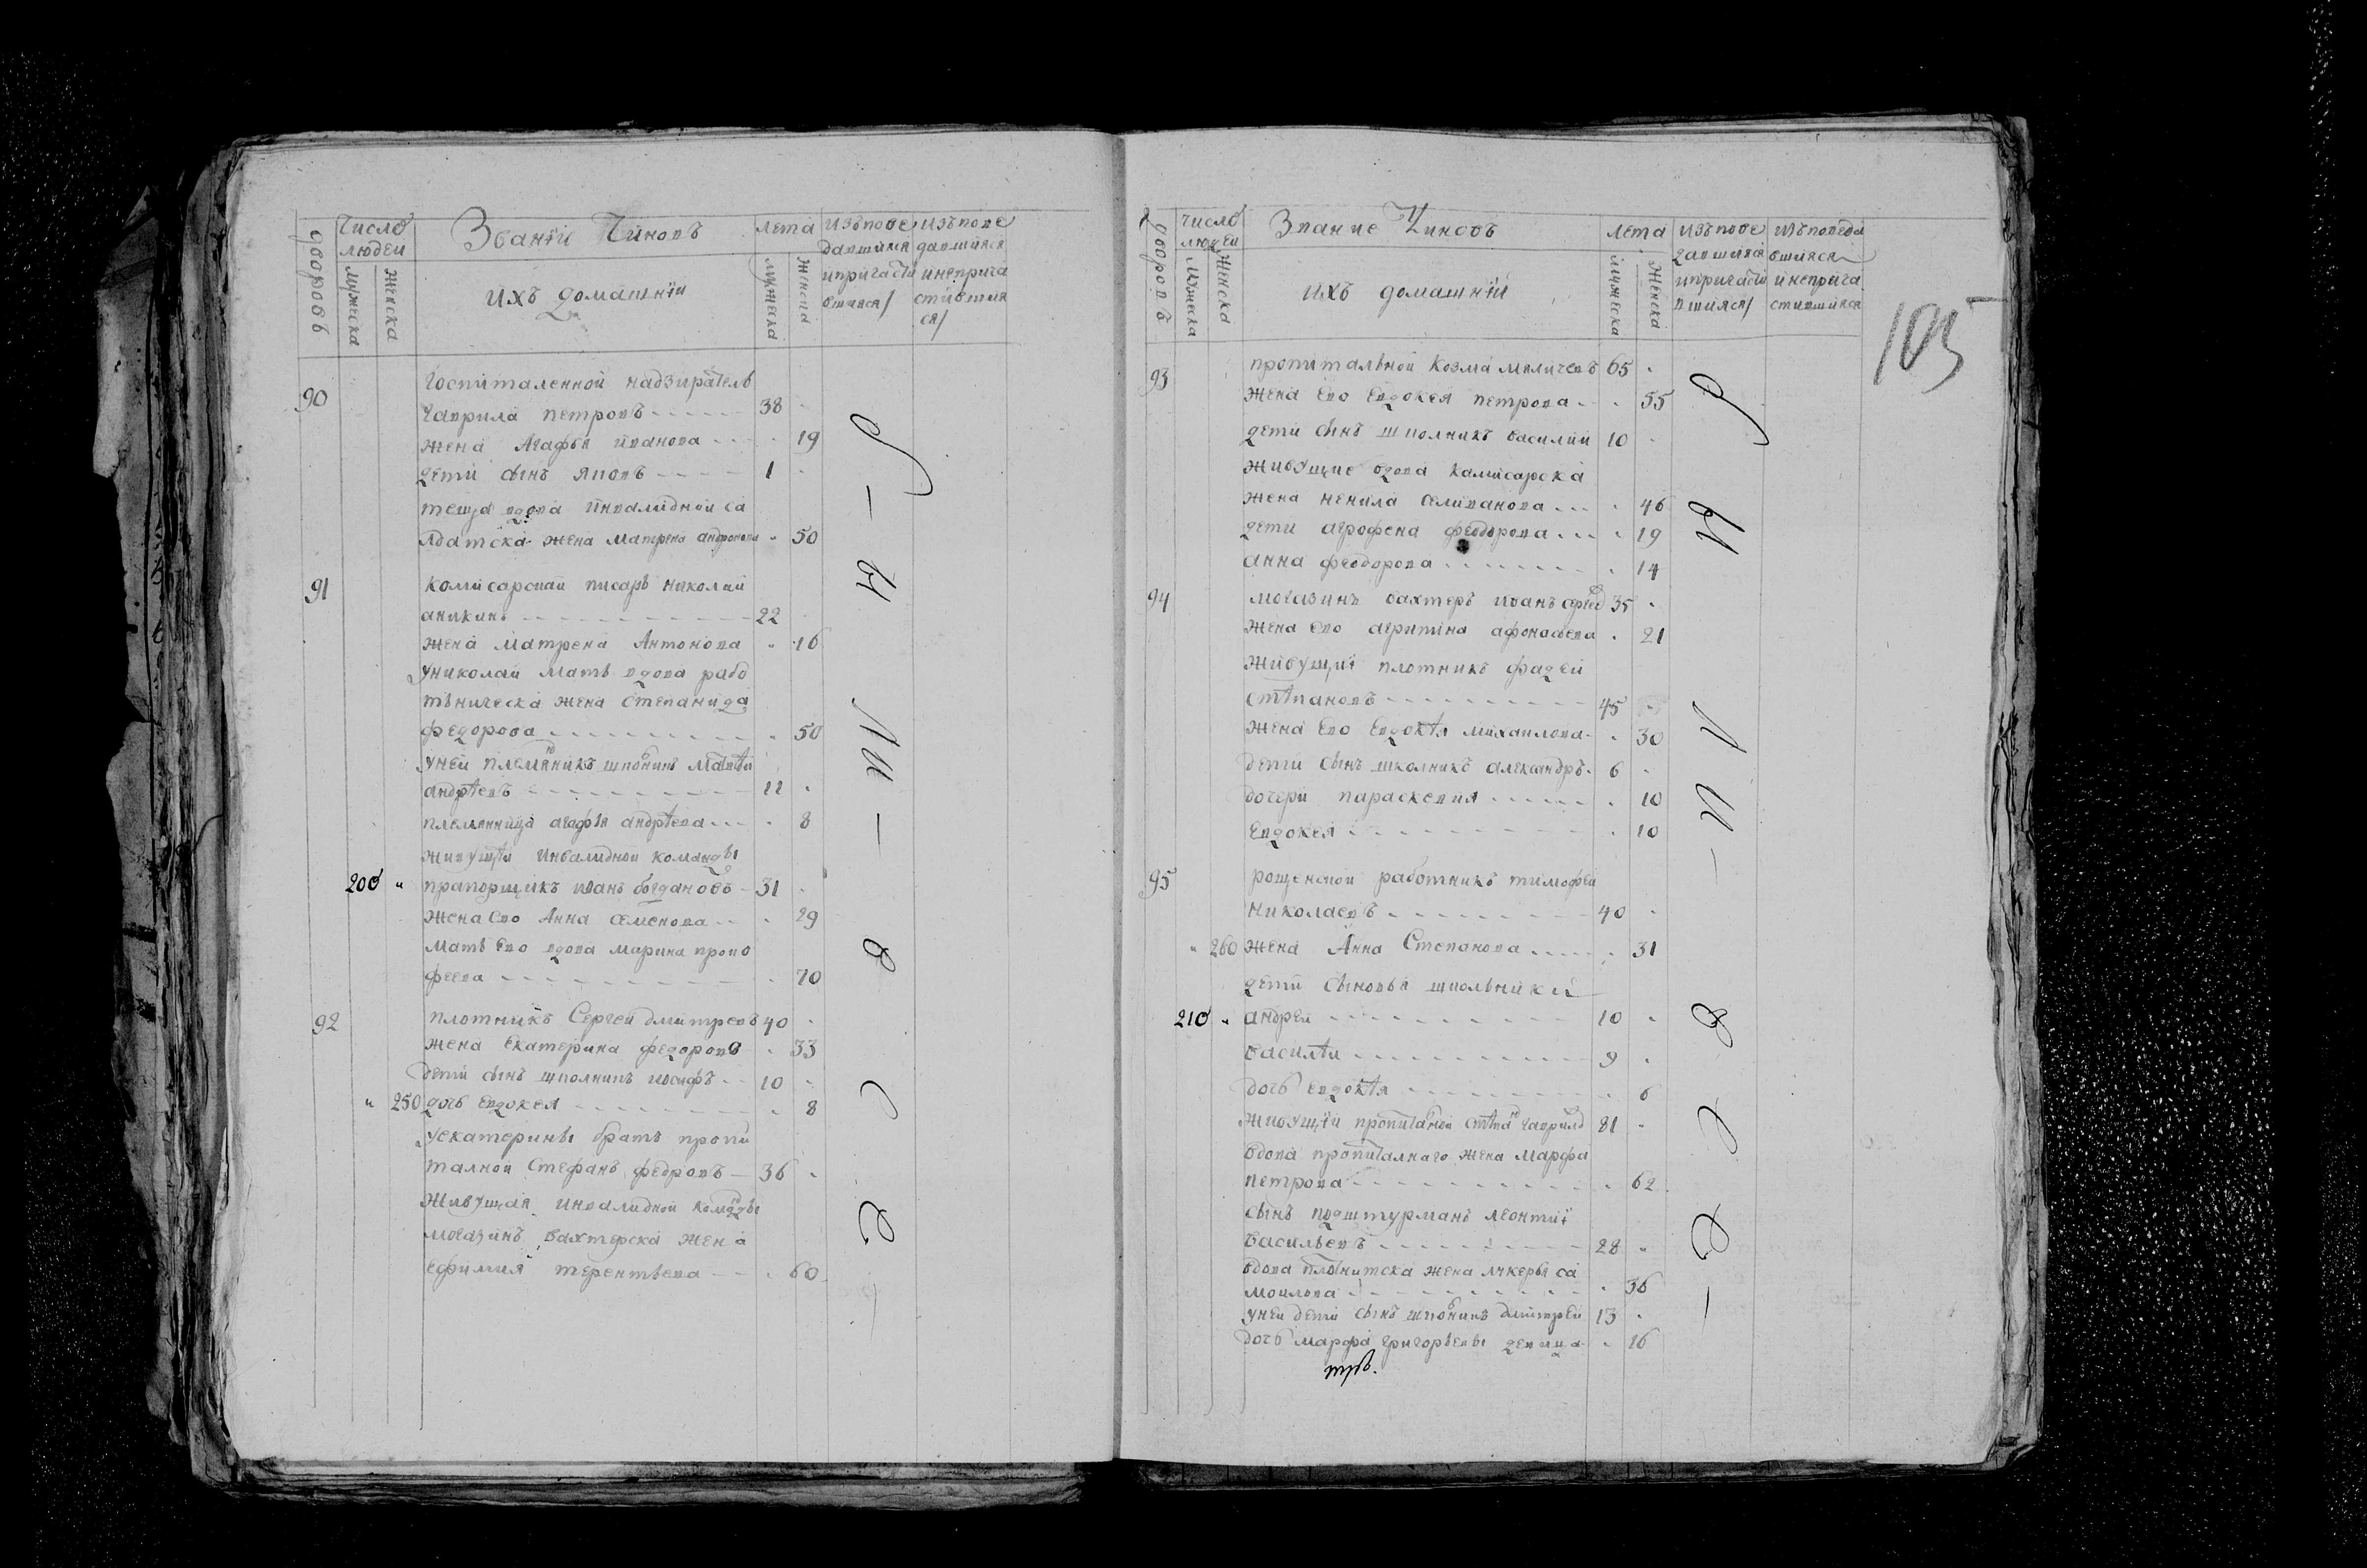 дворовъ
число людеи
мужеска
женска
Званїи Чиновъ
ихъ домашнїи
лета
мужеска
женска
изъпове
давшимя
ипричасти
вшияся/
изъпове
давшияся
инеприча
стившия
ся/
90
Госпиталенной надзиратель
Гаврила петровъ 38
жена Агафья иванова 19
дети сынъ яковъ 1
теща вдова инвалидной са
лдатска жена матрена андронова 50
91
комисарскаи писарь николаи
аникинъ 22
жена матрена Антонова 16
униколаи мать вдова рабо
тническа жена степанида
федорова 50
унеи племяникъ школникъ матвѣи
андрѣевъ 11
племянница агафья андрѣева 8
живущѣи инвалидной команды
200 прапорщикъ иванъ богдановъ 31
жена ево Анна семенова 29
мать ево вдова марина проко
феева 70
92
плотникъ Сергеи дмитревъ 40
жена екатерина федорова 33
дети сынъ школникъ иосифъ 10
250 дочь евдокея 8
уекатерины братъ пропи
талнои стефанъ федровъ 36
живущая инвалиднои команды
могазинъ вахтерска жена
ефимия терентьева 60
дворовъ
число людеи
мужеска
женска
Звание Чиновъ
ихъ домашнїи
лета
мужеска
женска
изъпове
давшияся
ипричасти
вшияся/
изъповеда
вшияся
инеприча
стившияся
105
93
пропитальной козма 65
жена ево евдокея петрова 55
дети сынъ школникъ василии 10
живущие вдова камисарска
жена ненила селиванова 46
дети агрофена феодорова 19
анна феодорова 14
94
могазинъ вахтеръ иванъ 35
жена ево агрипина афонасьева 21
живущиї плотникъ фадеи
стѣпановъ 45
жена ево евдокѣя михаилова 30
дети сынъ школникъ александръ 6
дочери параскевия 10
евдокея 10
95
рощенскои работникъ тимофеи
николаевъ 40
260 жена Анна Степанова 31
дети сыновья школьники
210 андреи 10
василѣи 9
дочь евдокѣя 6
живущїи гаврилъ 81
вдова пропиталнаго жена марфа
петрова 62
сынъ подштурманъ леонтиї
васильевъ 28
вдова плотнитска жена лукерья са
моилова 36
унеи дети сынъ школникъ дмитреи 13
дочь марфа григорьевы девица 16